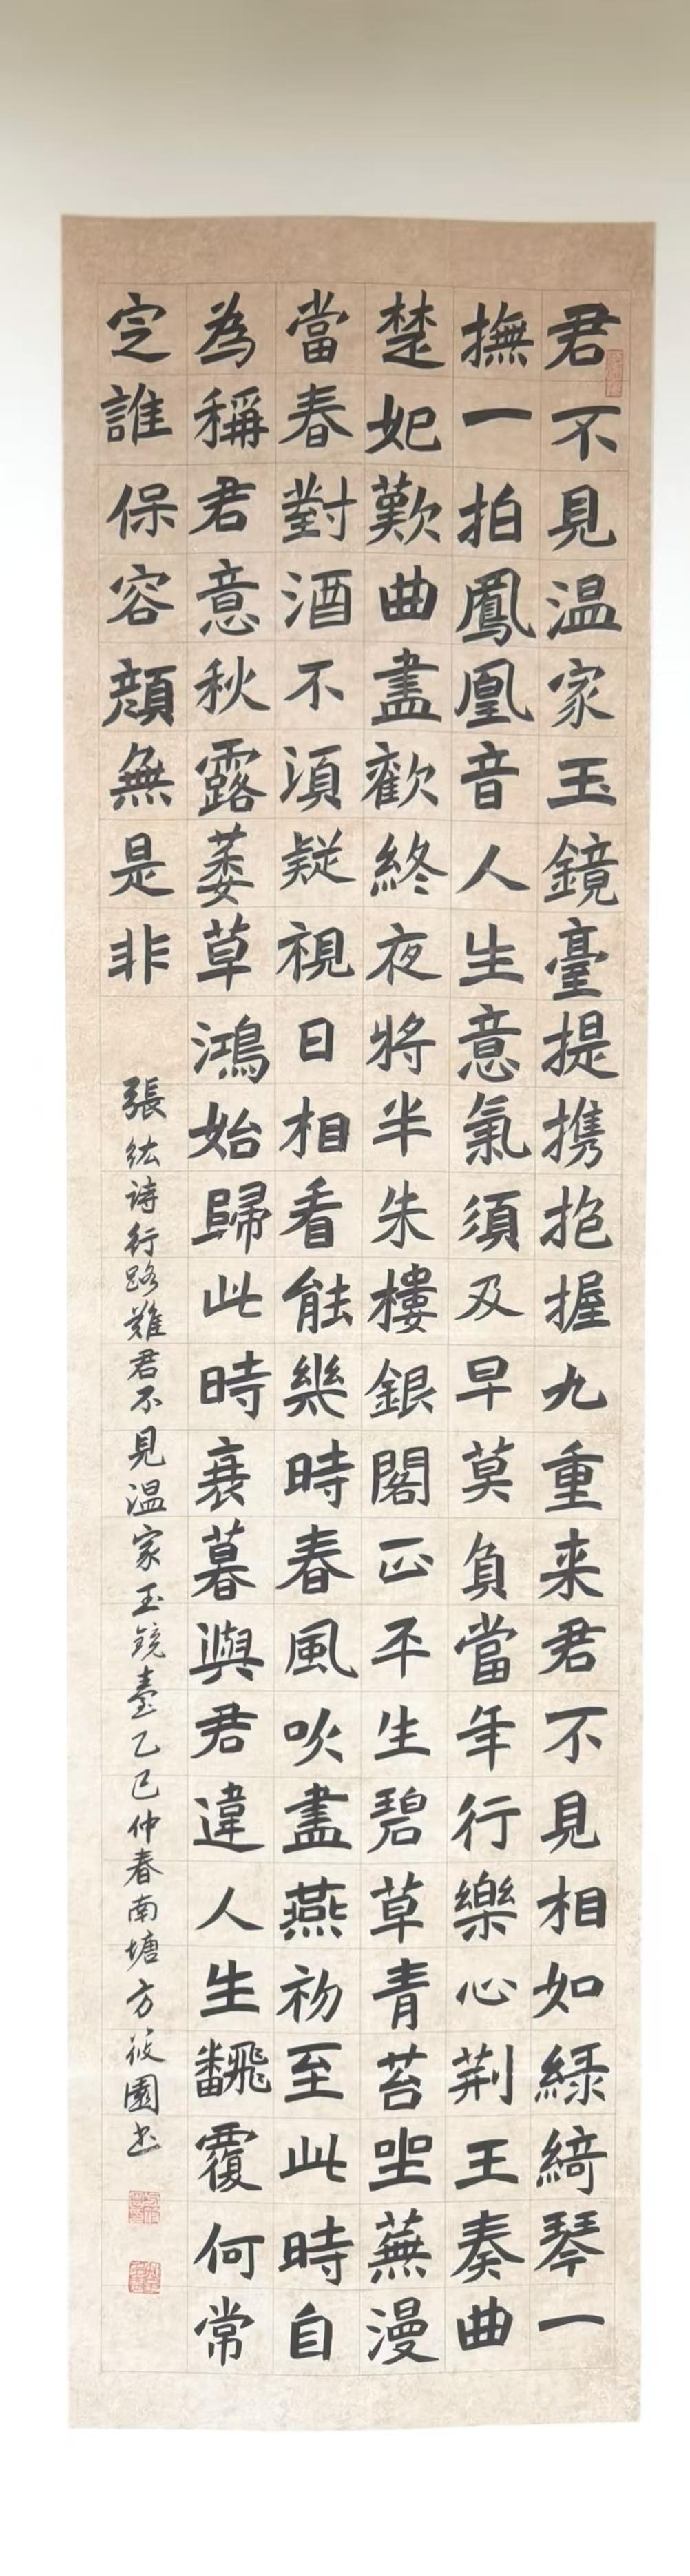 君不見温家玉鏡臺提攜抱握九重来君不見相如緑綺琴一
撫一拍鳳凰音人生意氣須及早莫負當年行樂心荆王奏曲
楚妃歎曲盡歡終夜將半朱樓銀閣正平生碧草青苔坐蕪漫
當春對酒不須疑視日相看能幾時春風吹盡燕初至此時自
為稱君意秋露萎草鴻始歸此時衰暮與君違人生飜覆何常
定誰保容顔無是非
張紘詩行路難君不見温家玉鏡臺乙巳仲春南塘方筱園书